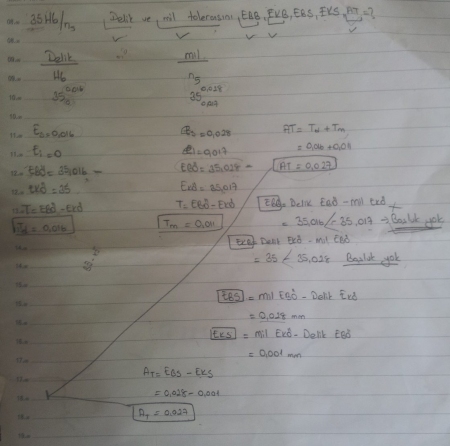 35H6/n5 Delik ve mil toleransını, EBB, EKB, EBS, EKS, AT=?
Delik
H6
35 0,016 0
Es=0,016
Ei=0
EBÖ=35,016
EKÖ=35
T=EBÖ-EKÖ
Td=0,016
mil
n5
35 0,028 0,017
es=0,028
ei=0,017
EBÖ=35,028
EKÖ=35,017
T=EBÖ-EKÖ
Tm=0,011
AT= Td+Tm
= 0,016+0,011
AT=0,027
EBB= Delik EBÖ - mil EKÖ
= 35,016 - 35,017 → Boşluk yok
EKB= Delik EKÖ - mil EBÖ
= 35 - 35,028 Boşluk yok
EBS = mil EBÖ - Delik EKÖ
= 0,028 mm
EKS = mil EKÖ - Delik EBÖ
= 0,001 mm
AT= EBS - EKS
= 0,028 - 0,001
AT = 0,027